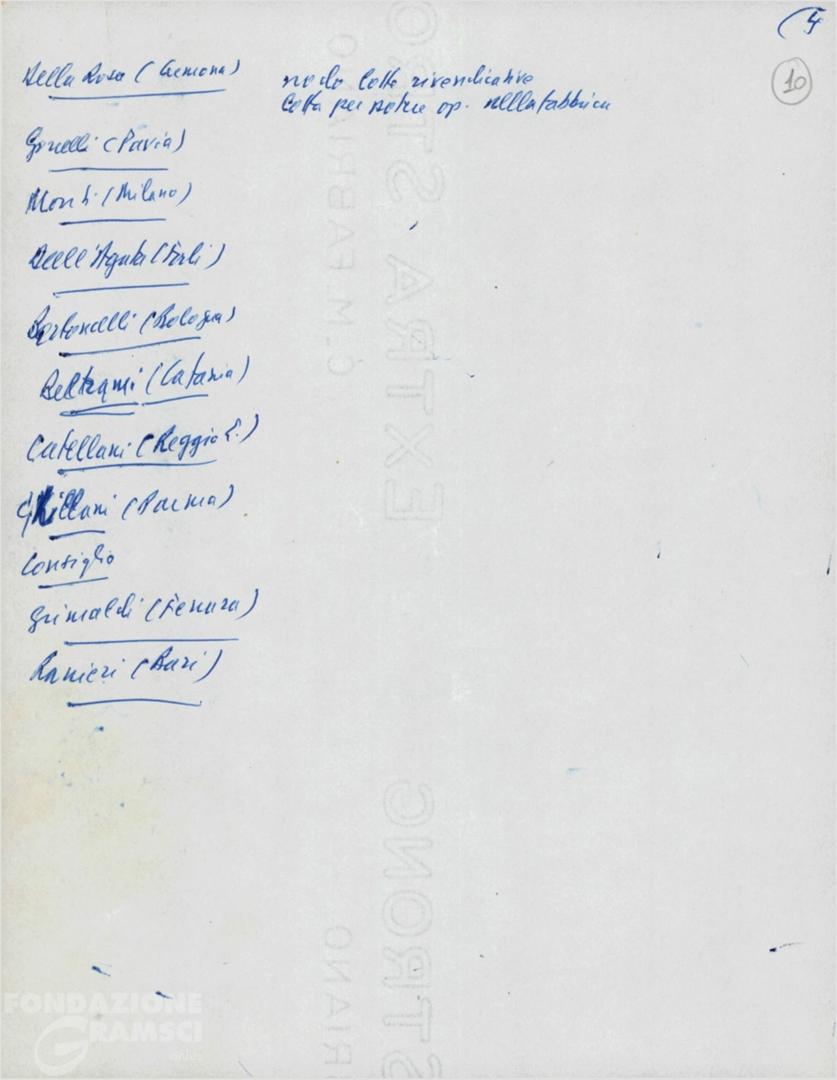 4
10
Della Rosa (Cremona)
nodo lotte rivendicative
lotta per potere op. nella fabbrica
Gorelli (Pavia)
Monti (Milano)
Dell'Agata (Forlì)
Bortondelli (Bologna)
Beltrami (Catania)
Catellani (Reggio E.)
(Parma)
Consiglio
Grimaldi (Ferrara)
Ranieri (Bari)
C. M. FABRIANO
EXTRA STRONG
RIANO
STRONG
FONDAZIONE
GRAMSCI